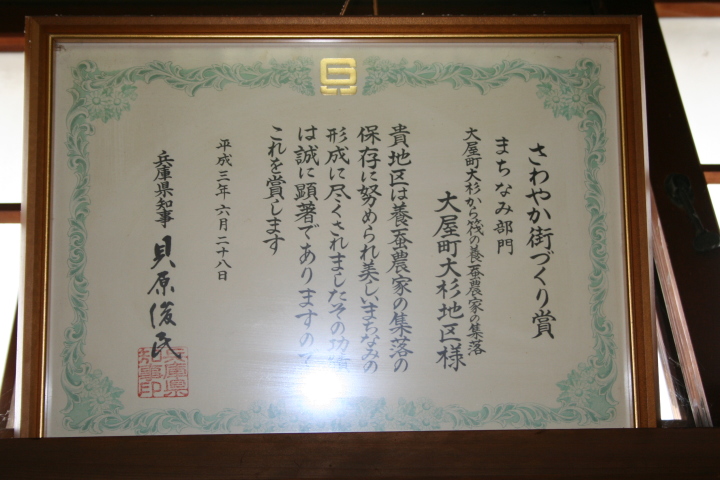 さわやか街づくり賞
まちなみ部門
大屋町大杉から筏の養蚕農家の集落
大屋町大杉地区様
貴地区は養蚕農家の集落の
保存に努められ美しいまちなみの
形成に尽くされましたその功績
は誠に顕著でありますので
これを賞します
平成三年六月二十八日
兵庫県知事 貝原俊民
兵庫県知事印